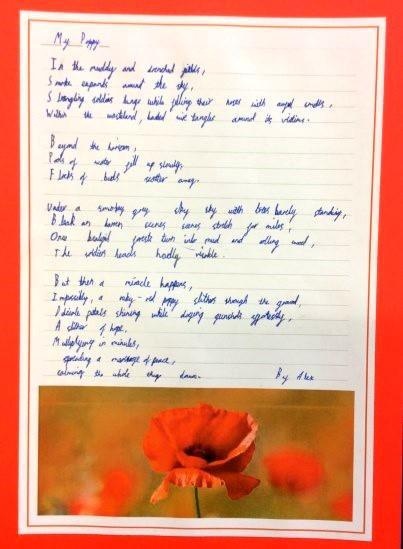 My Poppy
In the muddy and drenched fields,
Smoke expands around the sky,
Strangling soldiers lungs while filling their noses with awful smells,
Within the wasteland, barbed wire tangles around its victims.
Beyond the horizon,
Pools of water fill up slowly,
Flocks of birds scatter away.
Under a smokey grey sky with trees barely standing,
Bleak an barren scenes scenes stretch for miles,
Once beautiful forests turn into mud and rotting wood,
The soldiers heads hardly visible.
But then a miracle happens,
Impossibly, a ruby-red poppy slithers through the ground,
Delicate petals shining while dodging gunshots effortlessly,
A slither of hope.
Multiplying in minutes,
spreading a message of peace,
calming the whole thing down.
By Alex